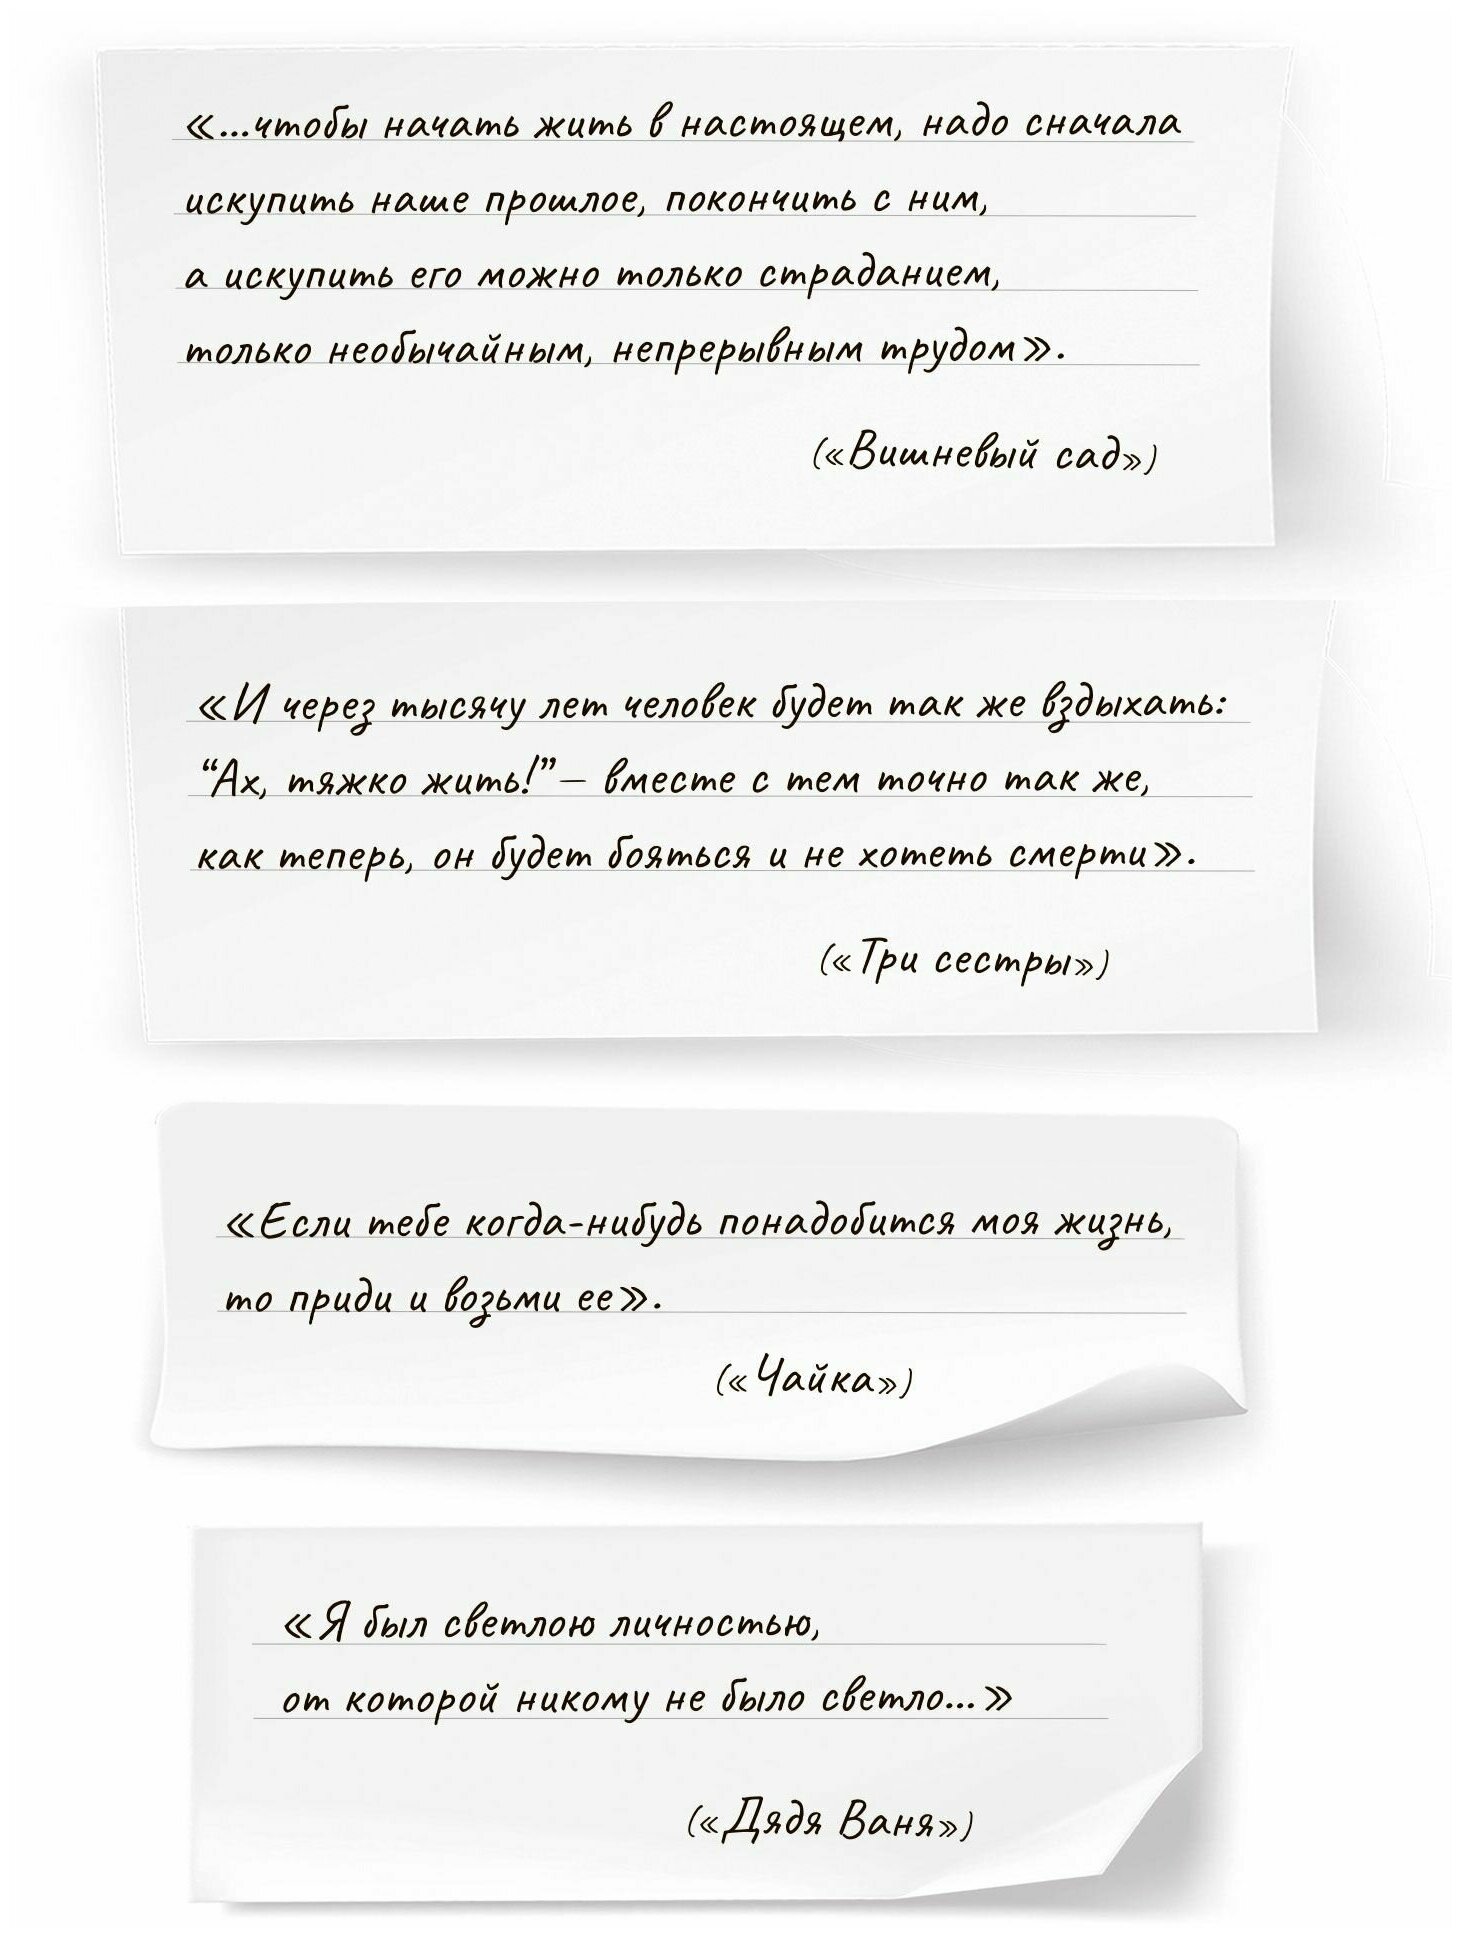 «...чтобы начать жить в настоящем, надо сначала
искупить наше прошлое, покончить с ним,
а искупить его можно только страданием,
только необычайным, непрерывным трудом».
(«Вишневый сад»)
«И через тысячу лет человек будет так же вздыхать:
“Ах, тяжко жить!”— вместе с тем точно так же,
как теперь, он будет бояться и не хотеть смерти».
(«Три сестры»)
«Если тебе когда-нибудь понадобится моя жизнь,
то приди и возьми ее».
(«Чайка»)
«Я был светлою личностью,
от которой никому не было светло...»
(«Дядя Ваня»)